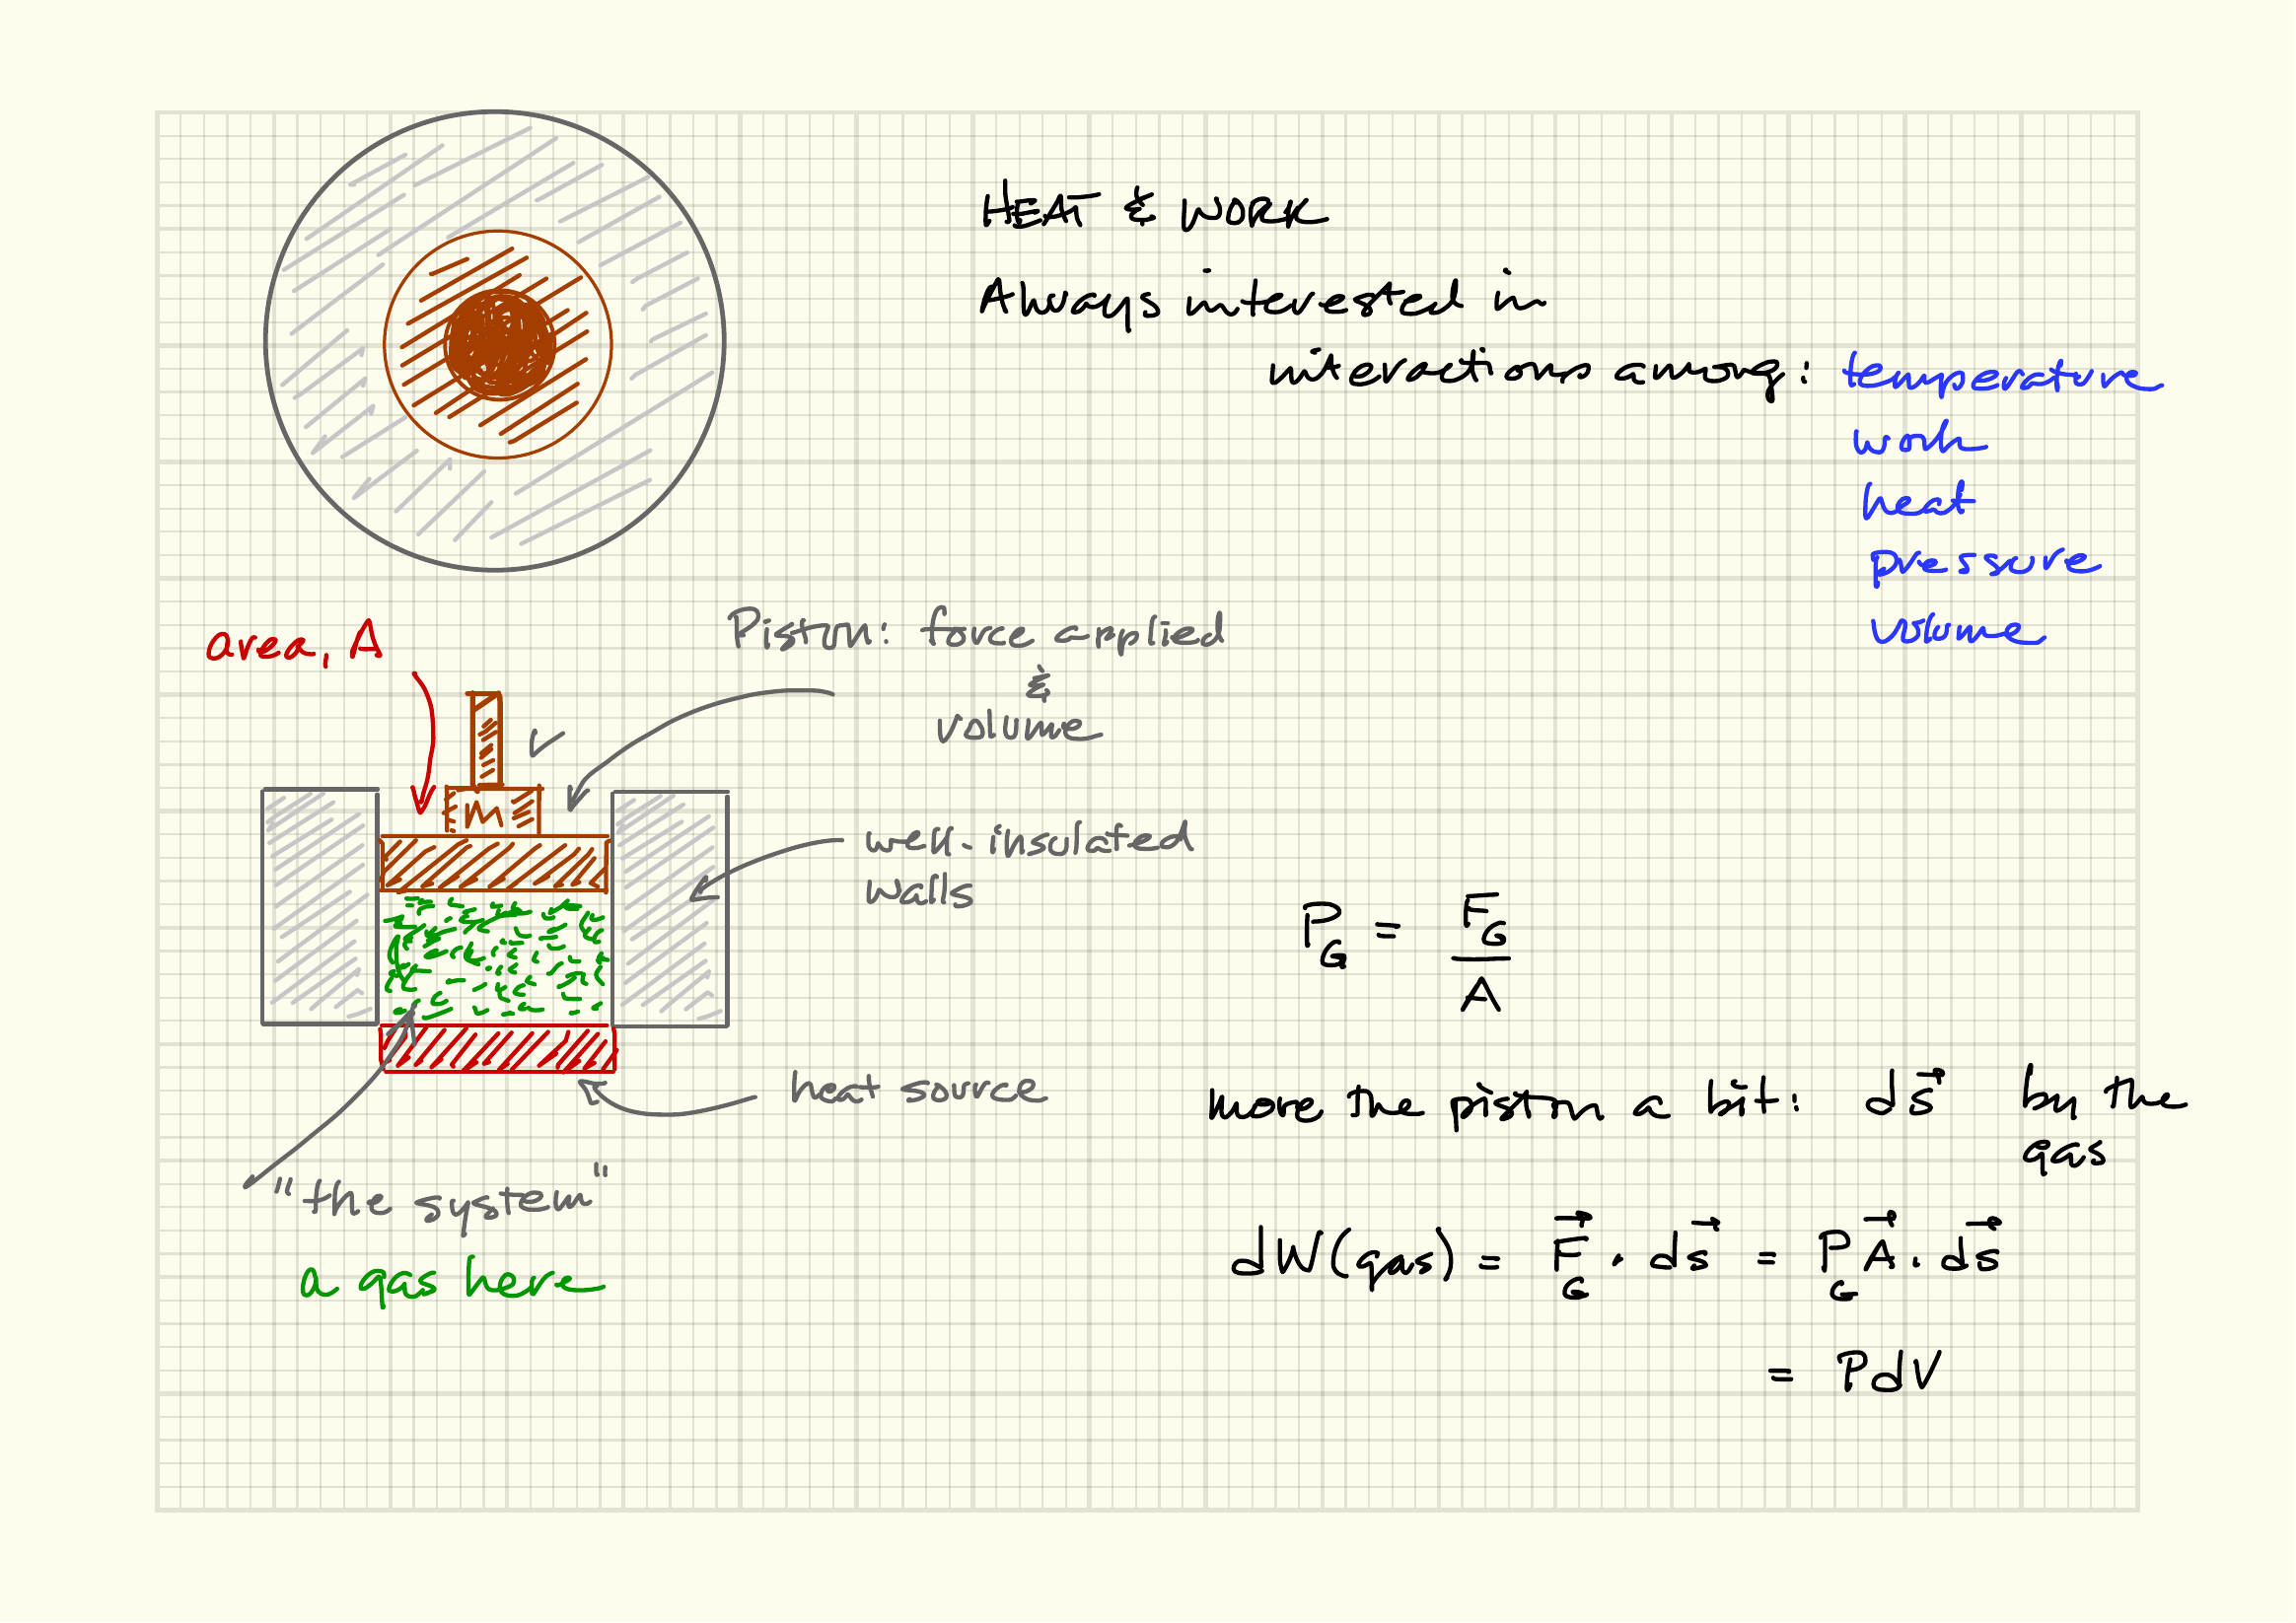 HEAT & WORK
Always interested in
interactions among: temperature
work
heat
pressure
volume
area, A
Piston: force applied
&
volume
M
well-insulated
walls
heat source
"the system"
a gas here
P_G = F_G / A
move the piston a bit: ds⃗ by the
gas
dW(gas) = F⃗_G · ds⃗ = P_G A⃗ · ds⃗
= PdV